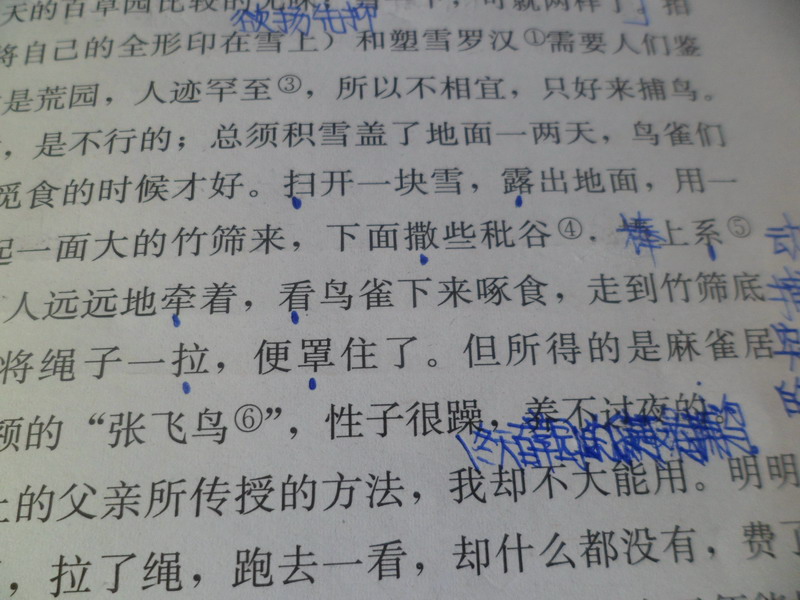 天的百草园比较的无味；雪一下，可就两样了。拍
欲扬先抑
将自己的全形印在雪上）和塑雪罗汉①需要人们鉴
是荒园，人迹罕至③，所以不相宜，只好来捕鸟。
，是不行的；总须积雪盖了地面一两天，鸟雀们
觅食的时候才好。扫开一块雪，露出地面，用一
起一面大的竹筛来，下面撒些秕谷④，棒上系⑤
人远远地牵着，看鸟雀下来啄食，走到竹筛底
将绳子一拉，便罩住了。但所得的是麻雀居
颊的“张飞鸟⑥”，性子很躁，养不过夜的
土的父亲所传授的方法，我却不大能用。明明
，拉了绳，跑去一看，却什么都没有，费了